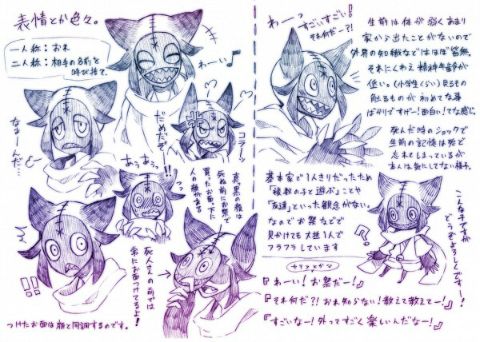 表情とか色々。
一人称:おれ
二人称:相手の名前を
呼び捨て。
わーい♪
なぁーんだ…
だめだぞ!!
コラーッ
あうあう
真黒の顔は
死ぬ前にお祭で
買ったお面。下に
人の顔が有る
死人さんの前では
常にお面つけてるよ!
つけたお面は顔と同調するのです。
わーっ
すごいすごい!
それ何だ?!
生前は体が弱くあまり
家から出たことがないので
外界の知識などはほぼ皆無。
それにくわえ精神年齢が
低い。(小学生くらい)見るもの
触るものが初めてな事
ばかりですげー!面白い!てな感じ
死んだ時のショックで
生前の記憶は殆ど
忘れてしまっているが
本人は気にしてない様子。
基本家で1人きりだったため
「複数の子と遊ぶ」ことや
「友達」といった観念がない。
なのでお祭などで
見かけても大抵1人で
フラフラしています
こんな子ですが
どうぞよろしくですー!
!?
『わーい!お祭だー!』
『それ何だ?!おれ知らない!教えて教えてー!』
『すごいなー!外ってすごく楽しいんだなー!』